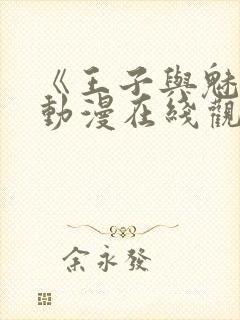 《王子與魅
動漫在綫觀
余永發